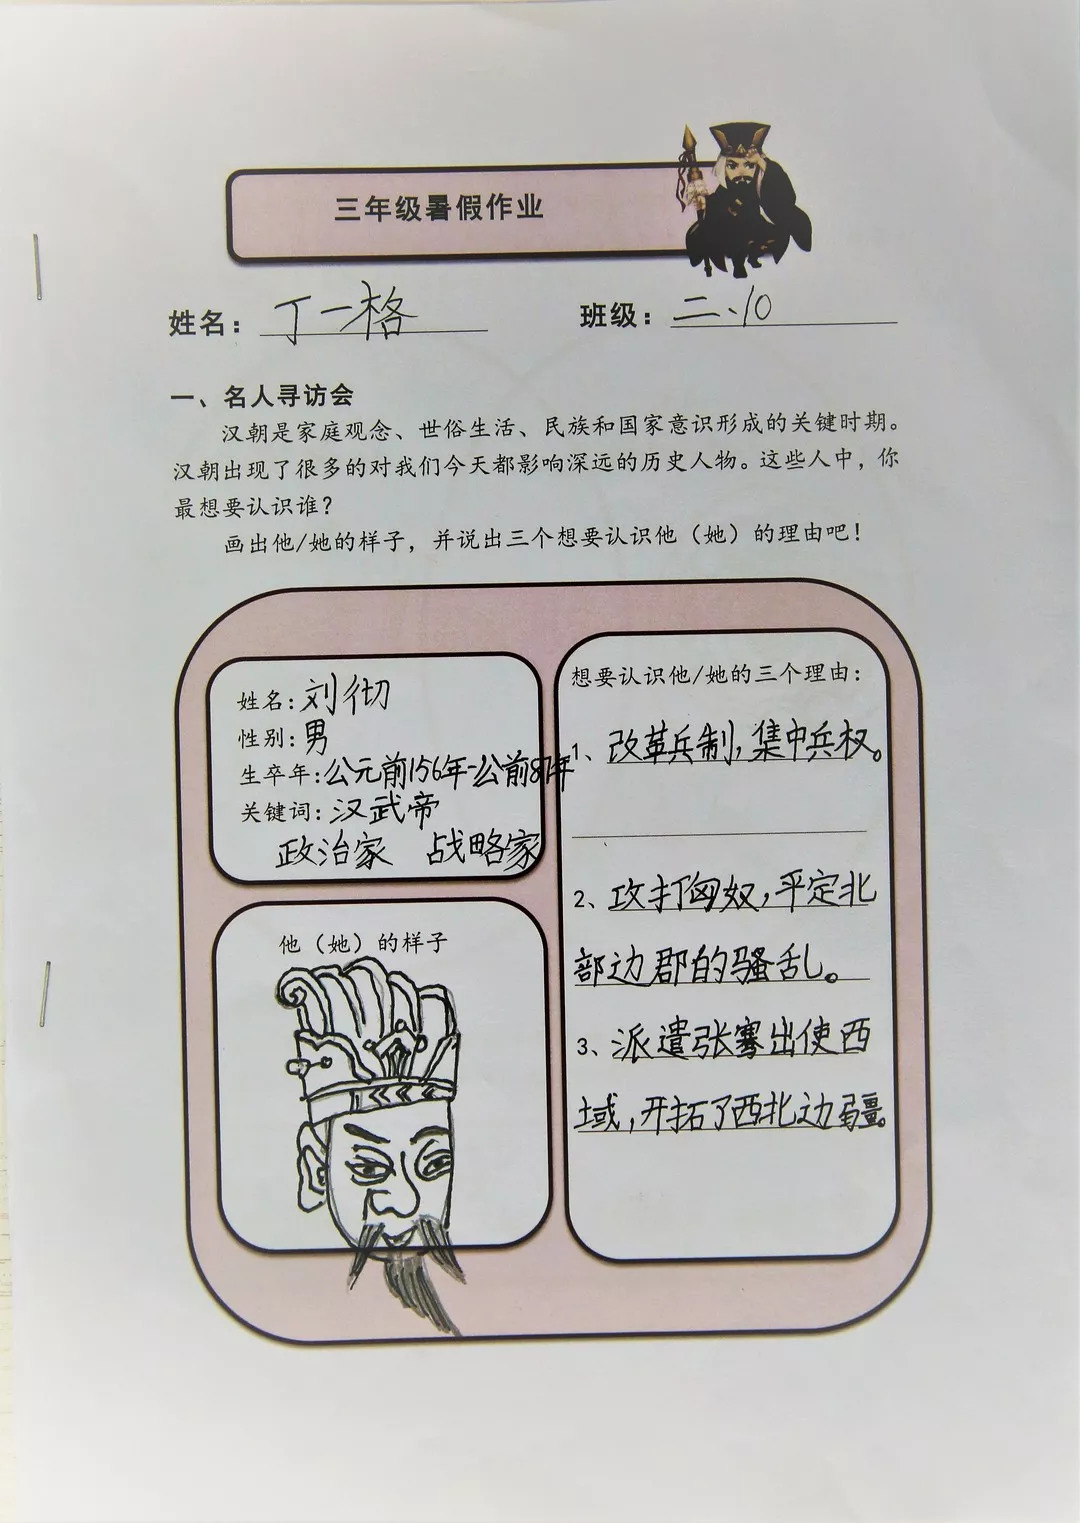 三年级暑假作业
姓名：丁一格 班级：二、10
一、名人寻访会
汉朝是家庭观念、世俗生活、民族和国家意识形成的关键时期。
汉朝出现了很多的对我们今天都影响深远的历史人物。这些人中，你
最想要认识谁？
画出他/她的样子，并说出三个想要认识他（她）的理由吧！
姓名：刘彻
性别：男
生卒年：公元前156年-公前87年
关键词：汉武帝
政治家 战略家
他（她）的样子
想要认识他/她的三个理由：
1、改革兵制，集中兵权。
2、攻打匈奴，平定北
部边郡的骚乱。
3、派遣张骞出使西
域，开拓了西北边疆。